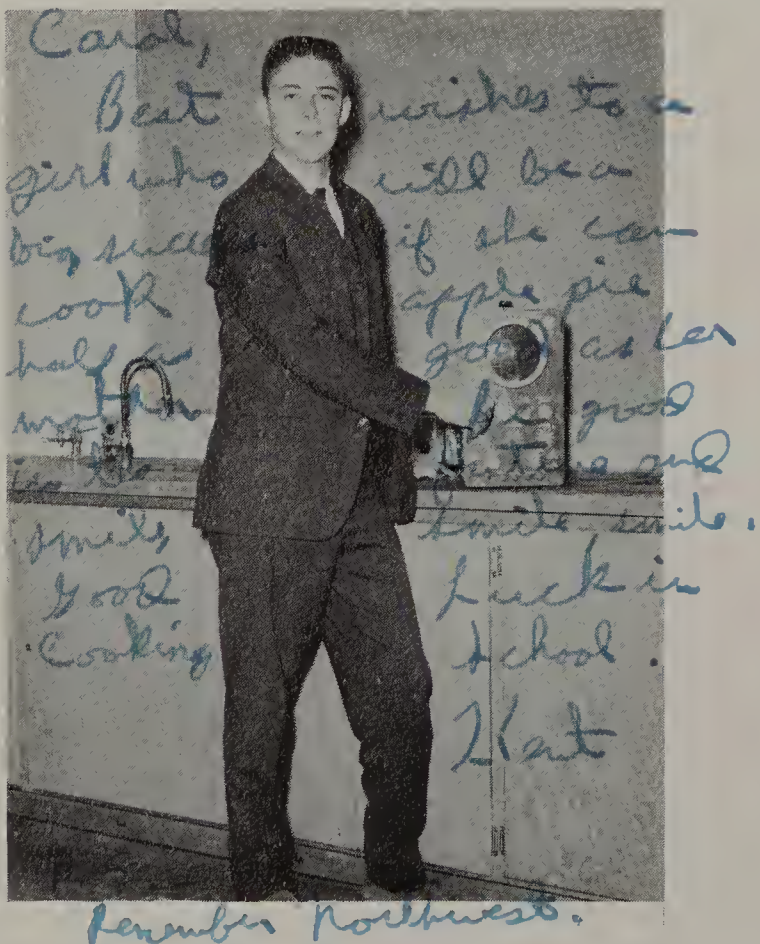 Carol,
Best wishes to a
girl who will be a
big success if she can
cook apple pie
half as good as her
mother. Be good
in the future and
smile, smile, smile.
Good Luck in
Cooking School
Kent
Remember Northwest.